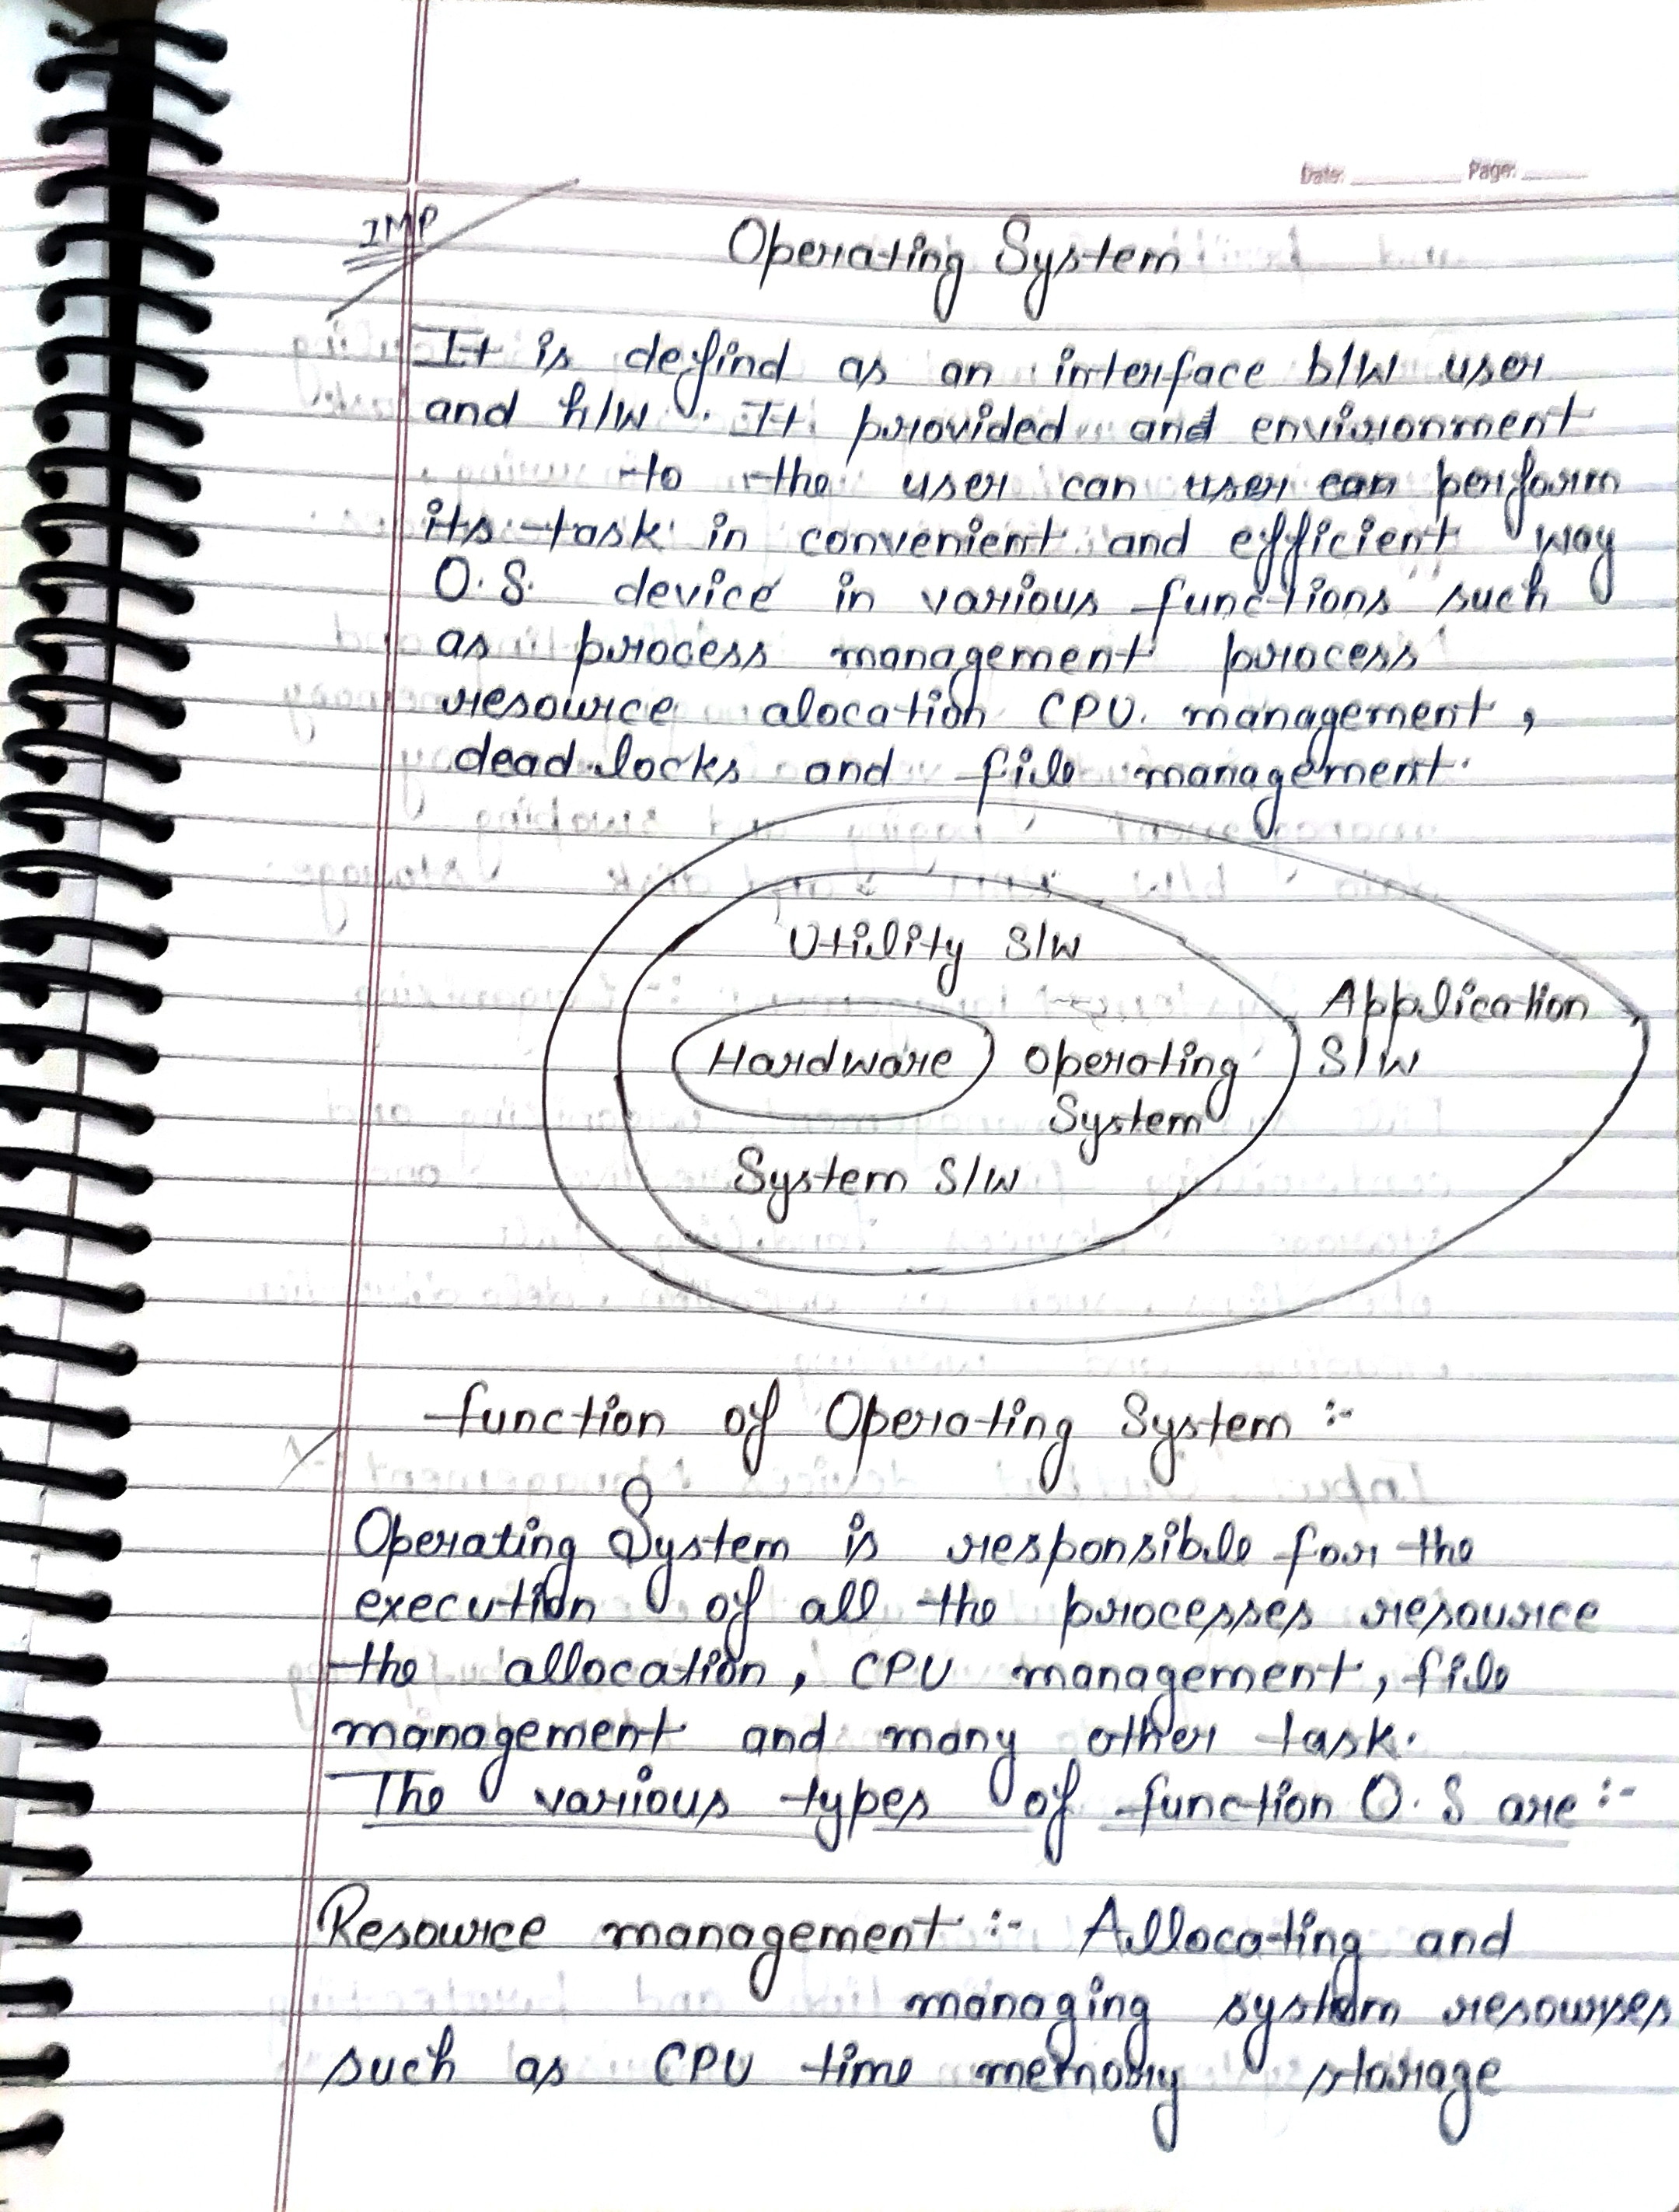 Date: Page:
IMP
Operating System
It is defind as an interface b/w user
and h/w. It provided and environment
to the user can user can perform
its task in convenient and efficient way
O.S. device in various functions such
as process management process
resource alocation CPU. management,
dead locks and file management.
Utility S/W
Application
Hardware Operating S/W
System
System S/W
function of Operating System :-
Operating System is responsible for the
execution of all the processes resource
the allocation, CPU management, file
management and many other task.
The various types of function O.S are :-
Resource management :- Allocating and
managing system resourses
such as CPU time memory storage